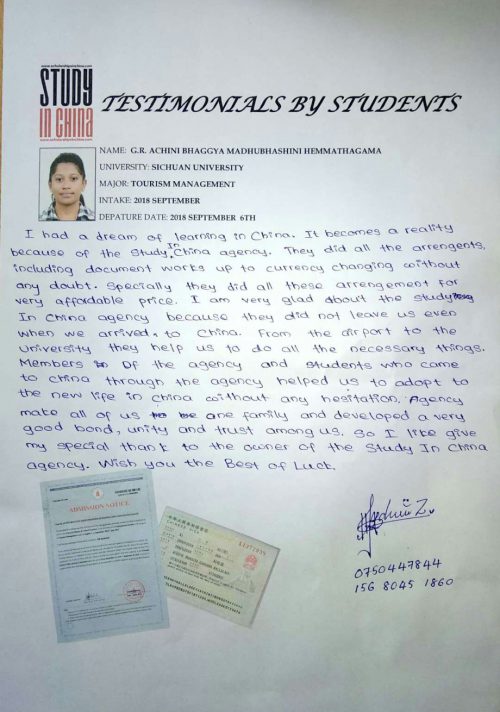 www.scholarshipinchina.com
STUDY
IN CHINA
www.scholarshipinchina.com
TESTIMONIALS BY STUDENTS
NAME: G.R. ACHINI BHAGGYA MADHUBHASHINI HEMMATHAGAMA
UNIVERSITY: SICHUAN UNIVERSITY
MAJOR: TOURISM MANAGEMENT
INTAKE: 2018 SEPTEMBER
DEPATURE DATE: 2018 SEPTEMBER 6TH
I had a dream of learning in China. It becomes a reality
because of the Study In China agency. They did all the arrengents,
including document works up to currency changing without
any doubt. Specially they did all these arrangement for
very affordable price. I am very glad about the study
In China agency because they did not leave us even
when we arrived, to China. From the airport to the
University they help us to do all the necessary things.
Members Of the agency and students who came
to china through the agency helped us to adopt to
the new life in china without any hesitation. Agency
make all of us to be one family and developed a very
good bond, unity and trust among us. So I like give
my special thank to the owner of the Study In China
agency. Wish you the Best of Luck.
ADMISSION NOTICE
0750447844
156 8045 1860